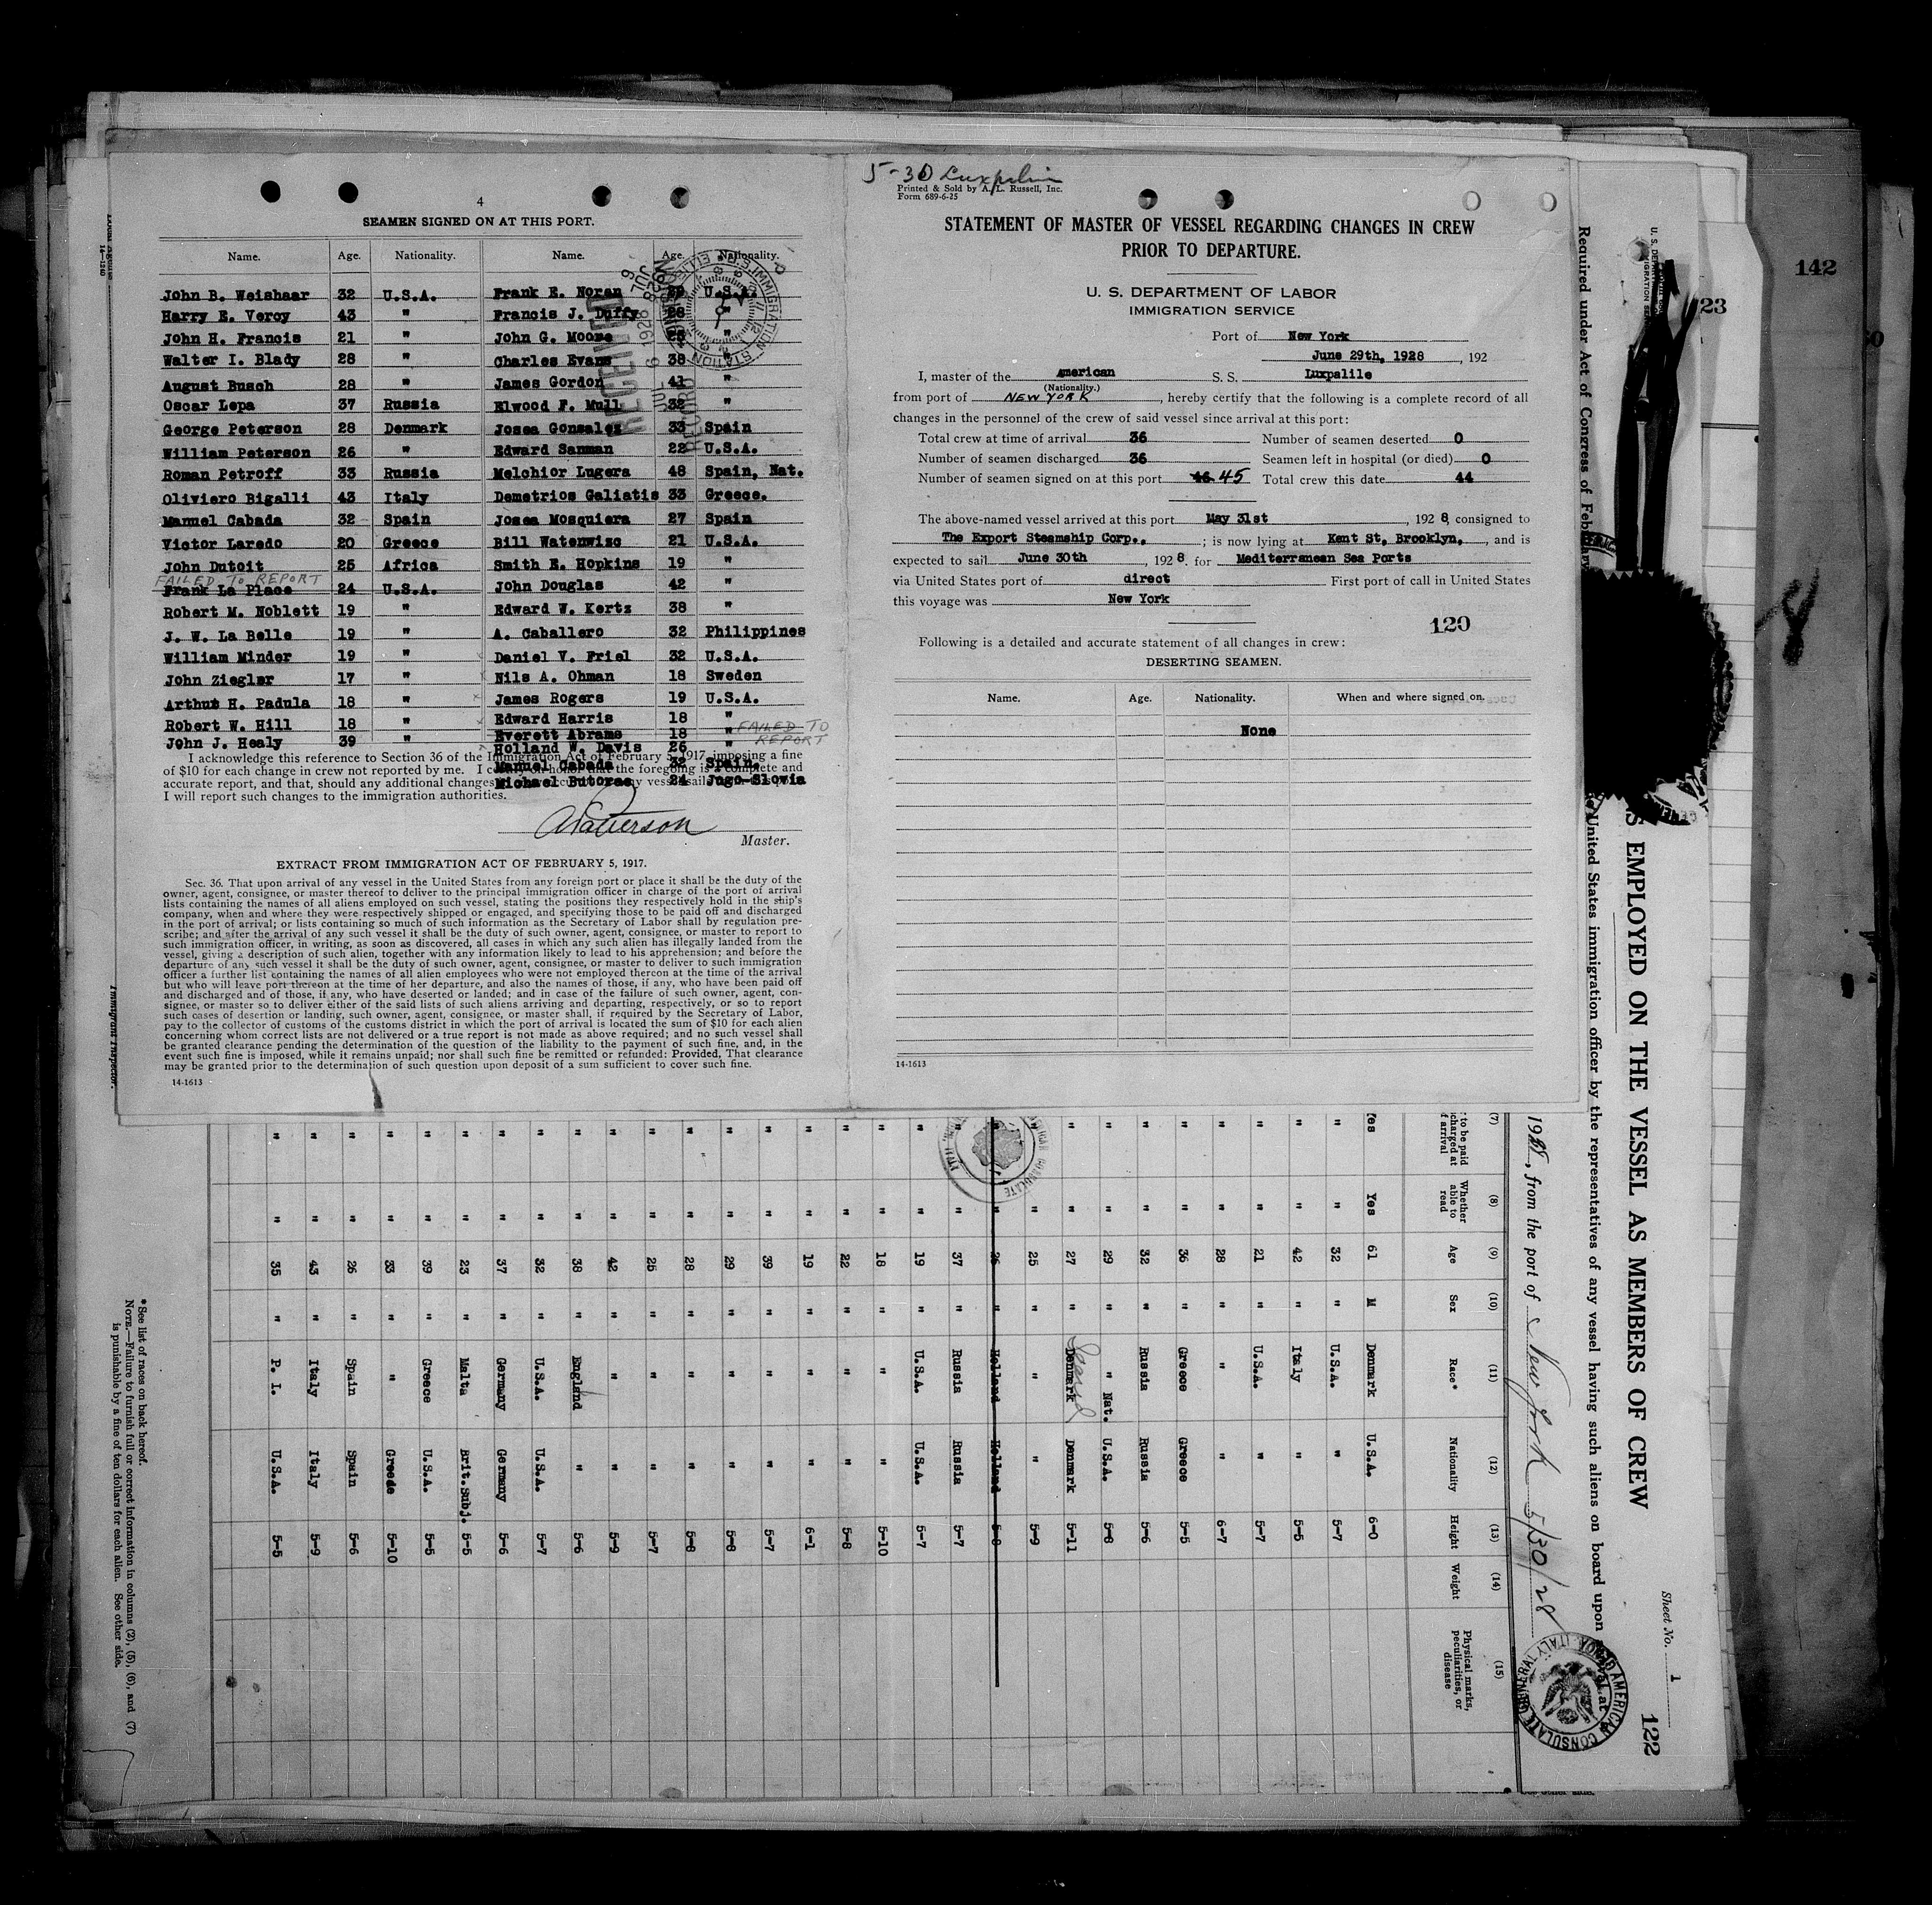 4
SEAMEN SIGNED ON AT THIS PORT.
Name. Age. Nationality. Name. Age. Nationality.
John B. Weishaar 32 U.S.A. Frank E. Noran U.S.A.
Harry E. Vercy 43 " Francis J. Duffy "
John H. Francis 21 " John G. Moore "
Walter I. Blady 28 " Charles Evans 38 "
August Busch 28 " James Gordon 41 "
Oscar Lepa 37 Russia Elwood F. Mull 32 "
George Peterson 28 Denmark Josea Gonzales 33 Spain
William Peterson 26 " Edward Sanman 22 U.S.A.
Roman Petroff 33 Russia Melchior Lugera 48 Spain, Nat.
Oliviero Bigalli 43 Italy Demetrios Galiatis 33 Greece.
Manuel Cabada 32 Spain Josea Mosquiera 27 Spain
Victor Laredo 20 Greece Bill Watenwizc 21 U.S.A.
John Dutoit 25 Africa Smith E. Hopkins 19 "
FAILED TO REPORT
Frank La Place 24 U.S.A. John Douglas 42 "
Robert M. Noblett 19 " Edward W. Kertz 38 "
J. W. La Belle 19 " A. Caballero 32 Philippines
William Minder 19 " Daniel V. Friel 32 U.S.A.
John Ziegler 17 " Nils A. Ohman 18 Sweden
Arthur H. Padula 18 " James Rogers 19 U.S.A.
Robert W. Hill 18 " Edward Harris 18 "
John J. Healy 39 " Everett Abrams 18 " FAILED TO REPORT
Holland W. Davis 26 "
Manuel Cabada 32 Spain.
Michael Butorac 24 Jugo-Slovia
RECEIVED
JUL 6 1928
RECORD
IMMIGRATION STATION
I acknowledge this reference to Section 36 of the Immigration Act of February 5, 1917, imposing a fine
of $10 for each change in crew not reported by me. I certify on honor that the foregoing is a complete and
accurate report, and that, should any additional changes vessel sails
I will report such changes to the immigration authorities.
Master.
EXTRACT FROM IMMIGRATION ACT OF FEBRUARY 5, 1917.
Sec. 36. That upon arrival of any vessel in the United States from any foreign port or place it shall be the duty of the
owner, agent, consignee, or master thereof to deliver to the principal immigration officer in charge of the port of arrival
lists containing the names of all aliens employed on such vessel, stating the positions they respectively hold in the ship's
company, when and where they were respectively shipped or engaged, and specifying those to be paid off and discharged
in the port of arrival; or lists containing so much of such information as the Secretary of Labor shall by regulation pre-
scribe; and after the arrival of any such vessel it shall be the duty of such owner, agent, consignee, or master to report to
such immigration officer, in writing, as soon as discovered, all cases in which any such alien has illegally landed from the
vessel, giving a description of such alien, together with any information likely to lead to his apprehension; and before the
departure of any such vessel it shall be the duty of such owner, agent, consignee, or master to deliver to such immigration
officer a further list containing the names of all alien employees who were not employed thereon at the time of the arrival
but who will leave port thereon at the time of her departure, and also the names of those, if any, who have been paid off
and discharged and of those, if any, who have deserted or landed; and in case of the failure of such owner, agent, con-
signee, or master so to deliver either of the said lists of such aliens arriving and departing, respectively, or so to report
such cases of desertion or landing, such owner, agent, consignee, or master shall, if required by the Secretary of Labor,
pay to the collector of customs of the customs district in which the port of arrival is located the sum of $10 for each alien
concerning whom correct lists are not delivered or a true report is not made as above required; and no such vessel shall
be granted clearance pending the determination of the question of the liability to the payment of such fine, and, in the
event such fine is imposed, while it remains unpaid; nor shall such fine be remitted or refunded: Provided, That clearance
may be granted prior to the determination of such question upon deposit of a sum sufficient to cover such fine.
14-1613
5-30 Luxpalile
Printed & Sold by A. L. Russell, Inc.
Form 689-6-25
STATEMENT OF MASTER OF VESSEL REGARDING CHANGES IN CREW
PRIOR TO DEPARTURE.
U. S. DEPARTMENT OF LABOR
IMMIGRATION SERVICE
Port of New York
June 29th, 1928, 192
I, master of the American S. S. Luxpalile
(Nationality.)
from port of NEW YORK, hereby certify that the following is a complete record of all
changes in the personnel of the crew of said vessel since arrival at this port:
Total crew at time of arrival 36 Number of seamen deserted 0
Number of seamen discharged 36 Seamen left in hospital (or died) 0
Number of seamen signed on at this port 46 45 Total crew this date 44
The above-named vessel arrived at this port May 31st, 1928, consigned to
The Export Steamship Corp.,; is now lying at Kent St, Brooklyn., and is
expected to sail June 30th, 1928. for Mediterranean Sea Ports
via United States port of direct First port of call in United States
this voyage was New York
120
Following is a detailed and accurate statement of all changes in crew:
DESERTING SEAMEN.
Name. Age. Nationality. When and where signed on.
None
14-1613
142
23
Sheet No. 1
122
S EMPLOYED ON THE VESSEL AS MEMBERS OF CREW
Required under Act of Congress of February
United States immigration officer by the representatives of any vessel having such aliens on board upon
1928, from the port of New York 5/30/28
AMERICAN CONSULATE GENERAL
(7) (8) (9) (10) (11) (12) (13) (14) (15)
to be paid Whether able to read Age Sex Race* Nationality Height Weight Physical marks, peculiarities, or disease
Yes Yes 61 M Denmark U.S.A. 6-0
" " 32 " U.S.A. " 5-7
" " 42 " Italy " 5-5
" " 21 " U.S.A. " 5-7
" " 28 " " " 6-7
" " 36 " Greece Greece 5-5
" " 32 " Russia Russia 5-6
" " 29 " " Nat. U.S.A. 5-8
" " 27 " Denmark Denmark 5-11
" " 25 " " " 5-9
" " 26 " Holland Holland 5-8
" " 37 " Russia Russia 5-7
" " 19 " U.S.A. U.S.A. 5-7
" " 18 " " " 5-10
" " 22 " " " 5-8
" " 19 " " " 6-1
" " 39 " " " 5-7
" " 29 " " " 5-8
" " 28 " " " 5-8
" " 25 " " " 5-7
" " 42 " " " 5-9
" " 38 " England " 5-6
" " 32 " U.S.A. U.S.A. 5-7
" " 37 " Germany Germany 5-6
" " 23 " Malta Brit.Subj. 5-5
" " 39 " Greece U.S.A. 5-5
" " 33 " " Greede 5-10
" " 26 " Spain Spain 5-6
" " 43 " Italy Italy 5-9
" " 35 " P. I. U.S.A. 5-5
*See list of races on back hereof.
NOTE.—Failure to furnish full or correct information in columns (2), (5), (6), and (7)
is punishable by a fine of ten dollars for each alien. See other side.
Immigrant Inspector.